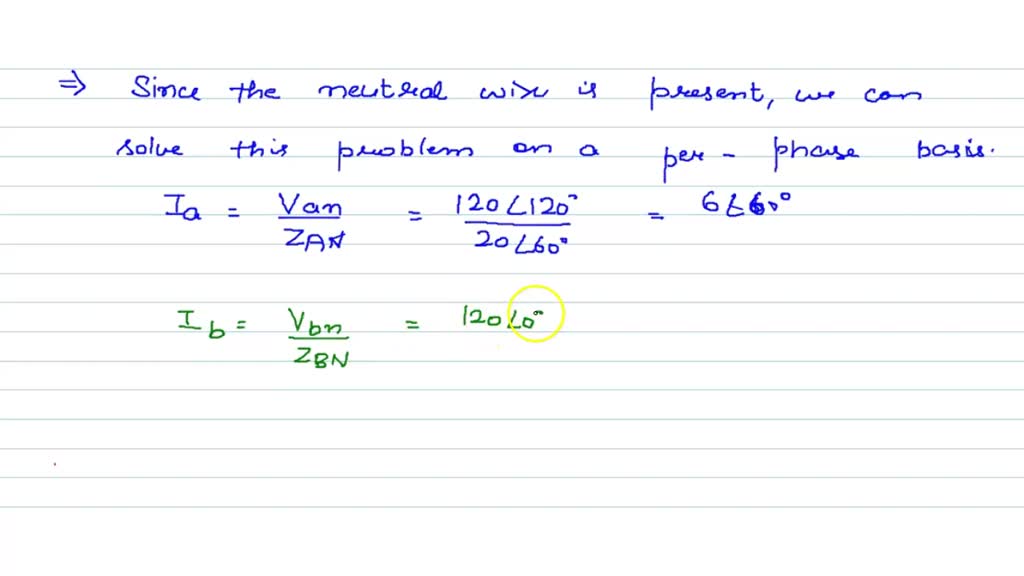 ⇒ Since the neutral wire is present, we can
solve this problem on a per - phase basis.
Ia = Van / ZAN = 120∠120° / 20∠60° = 6∠60°
Ib = Vbn / ZBN = 120∠0°